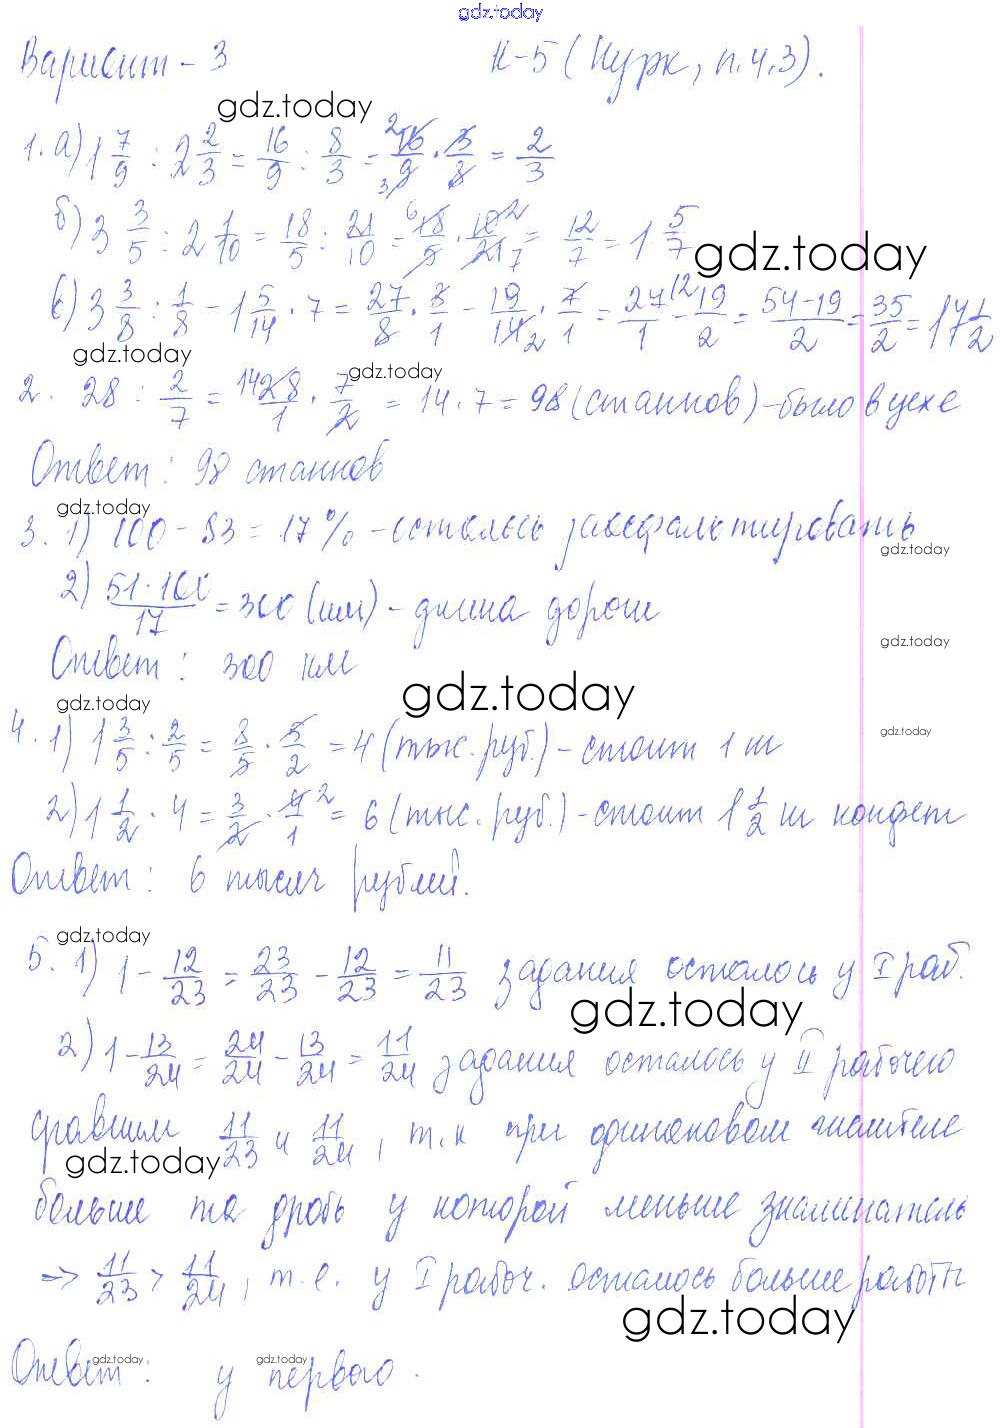 gdz.today
Вариант - 3 К-5 (Нурк, п.4,3).
gdz.today
1. а) 1 7/9 : 2 2/3 = 16/9 : 8/3 = 16/9 · 3/8 = 2/3
б) 3 3/5 : 2 1/10 = 18/5 : 21/10 = 18/5 · 10/21 = 12/7 = 1 5/7
gdz.today
в) 3 3/8 : 1/8 - 1 5/14 · 7 = 27/8 · 8/1 - 19/14 · 7/1 = 27/1 - 19/2 = 54-19/2 = 35/2 = 17 1/2
gdz.today gdz.today
2. 28 : 2/7 = 28/1 · 7/2 = 14 · 7 = 98 (станков) - было в цехе
Ответ: 98 станков
gdz.today
3. 1) 100 - 83 = 17% - осталось заасфальтировать
gdz.today
2) 51·100/17 = 300 (км) - длина дороги
gdz.today
Ответ: 300 км
gdz.today
gdz.today
gdz.today
4. 1) 1 3/5 : 2/5 = 8/5 · 5/2 = 4 (тыс. руб.) - стоит 1 т
2) 1 1/2 · 4 = 3/2 · 4/1 = 6 (тыс. руб.) - стоит 1 1/2 т конфет
Ответ: 6 тысяч рублей.
gdz.today
5. 1) 1 - 12/23 = 23/23 - 12/23 = 11/23 задания осталось у I раб.
gdz.today
2) 1 - 13/24 = 24/24 - 13/24 = 11/24 задания осталось у II рабочего
сравним 11/23 и 11/24, т.к при одинаковом числителе
gdz.today
больше та дробь у которой меньше знаминатель
=> 11/23 > 11/24, т.е. у I рабоч. осталось больше работы
gdz.today
Ответ: у первого.
gdz.today gdz.today